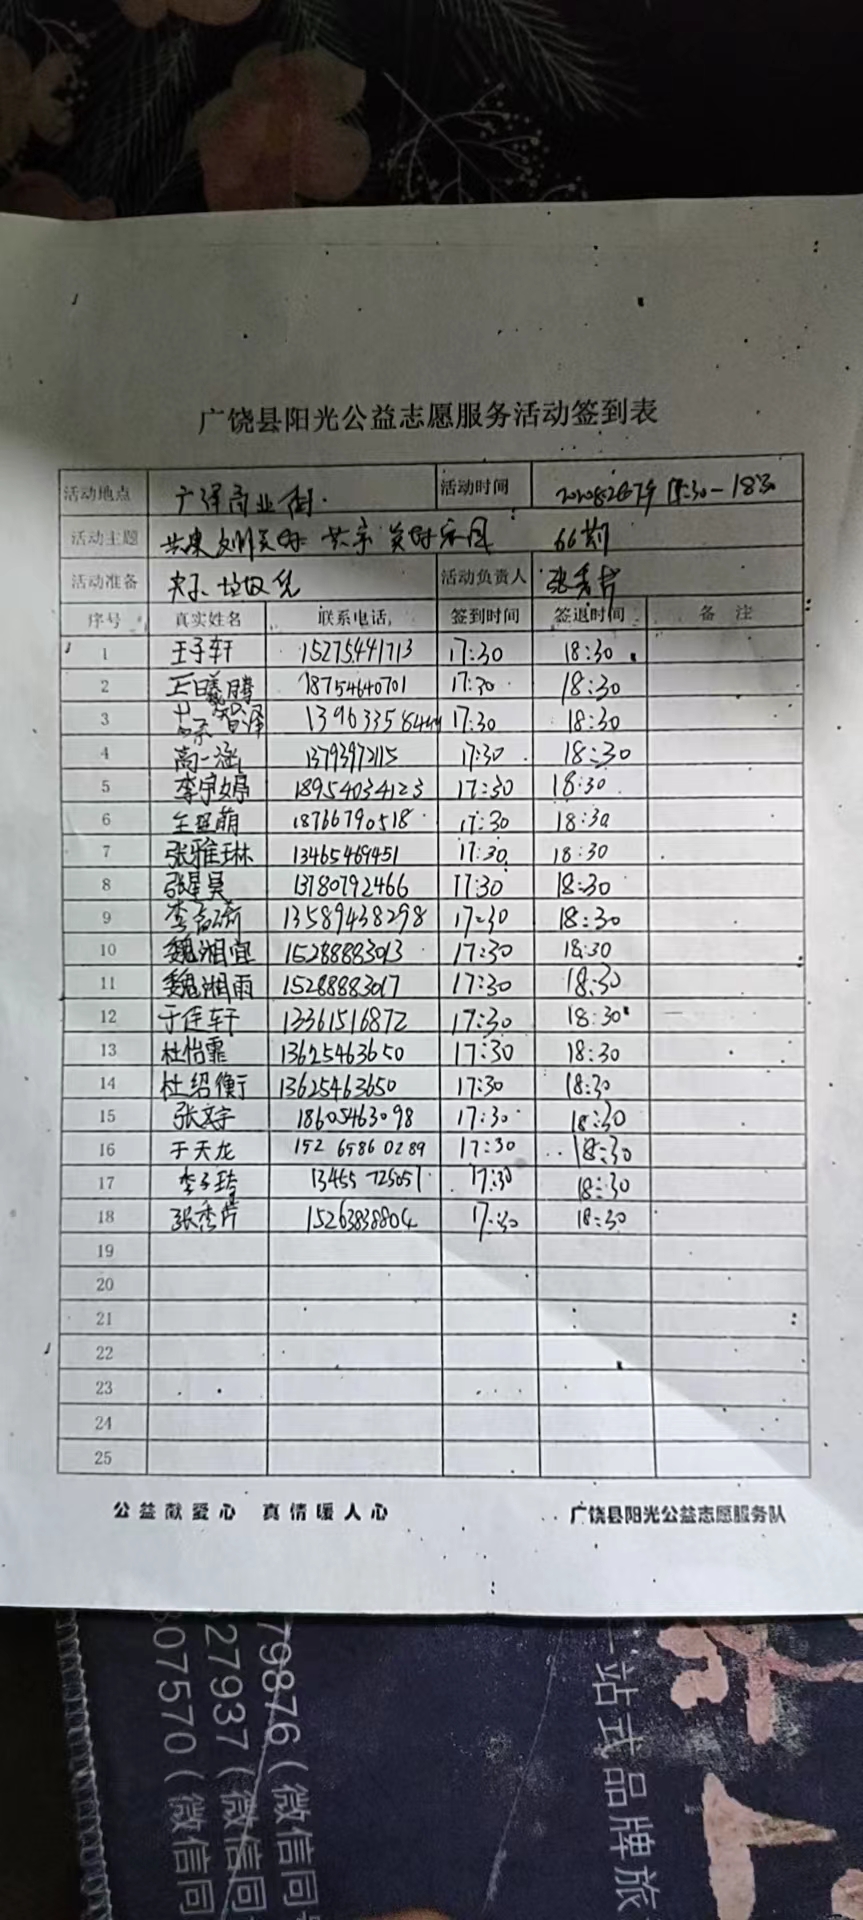 广饶县阳光公益志愿服务活动签到表
活动地点 广泽商业街. 活动时间 17:30-18:30
活动主题 66期
活动准备 夹子、垃圾袋 活动负责人 张秀芹
序号 真实姓名 联系电话 签到时间 签退时间 备注
1 王子轩 15275441713 17:30 18:30
2 18754640701 17:30 18:30
3 17:30 18:30
4 高一涵 13793972115 17:30 18:30
5 李宇婷 18954034123 17:30 18:30
6 18766790518 17:30 18:30
7 张雅琳 13465469451 17:30 18:30
8 张星昊 13780792466 17:30 18:30
9 13589438298 17:30 18:30
10 魏湘宜 15288883013 17:30 18:30
11 魏湘雨 15288883017 17:30 18:30
12 13361516872 17:30 18:30
13 杜怡霏 13625463650 17:30 18:30
14 杜绍衡 13625463650 17:30 18:30
15 张文宇 18605463098 17:30 18:30
16 于天龙 152 6586 0289 17:30 18:30
17 13455 725051 17:30 18:30
18 张秀芹 15263838804 17:30 18:30
19
20
21
22
23
24
25
公益献爱心 真情暖人心 广饶县阳光公益志愿服务队
79876(微信同
27937(微信同
07570(微信同
一站式品牌旅